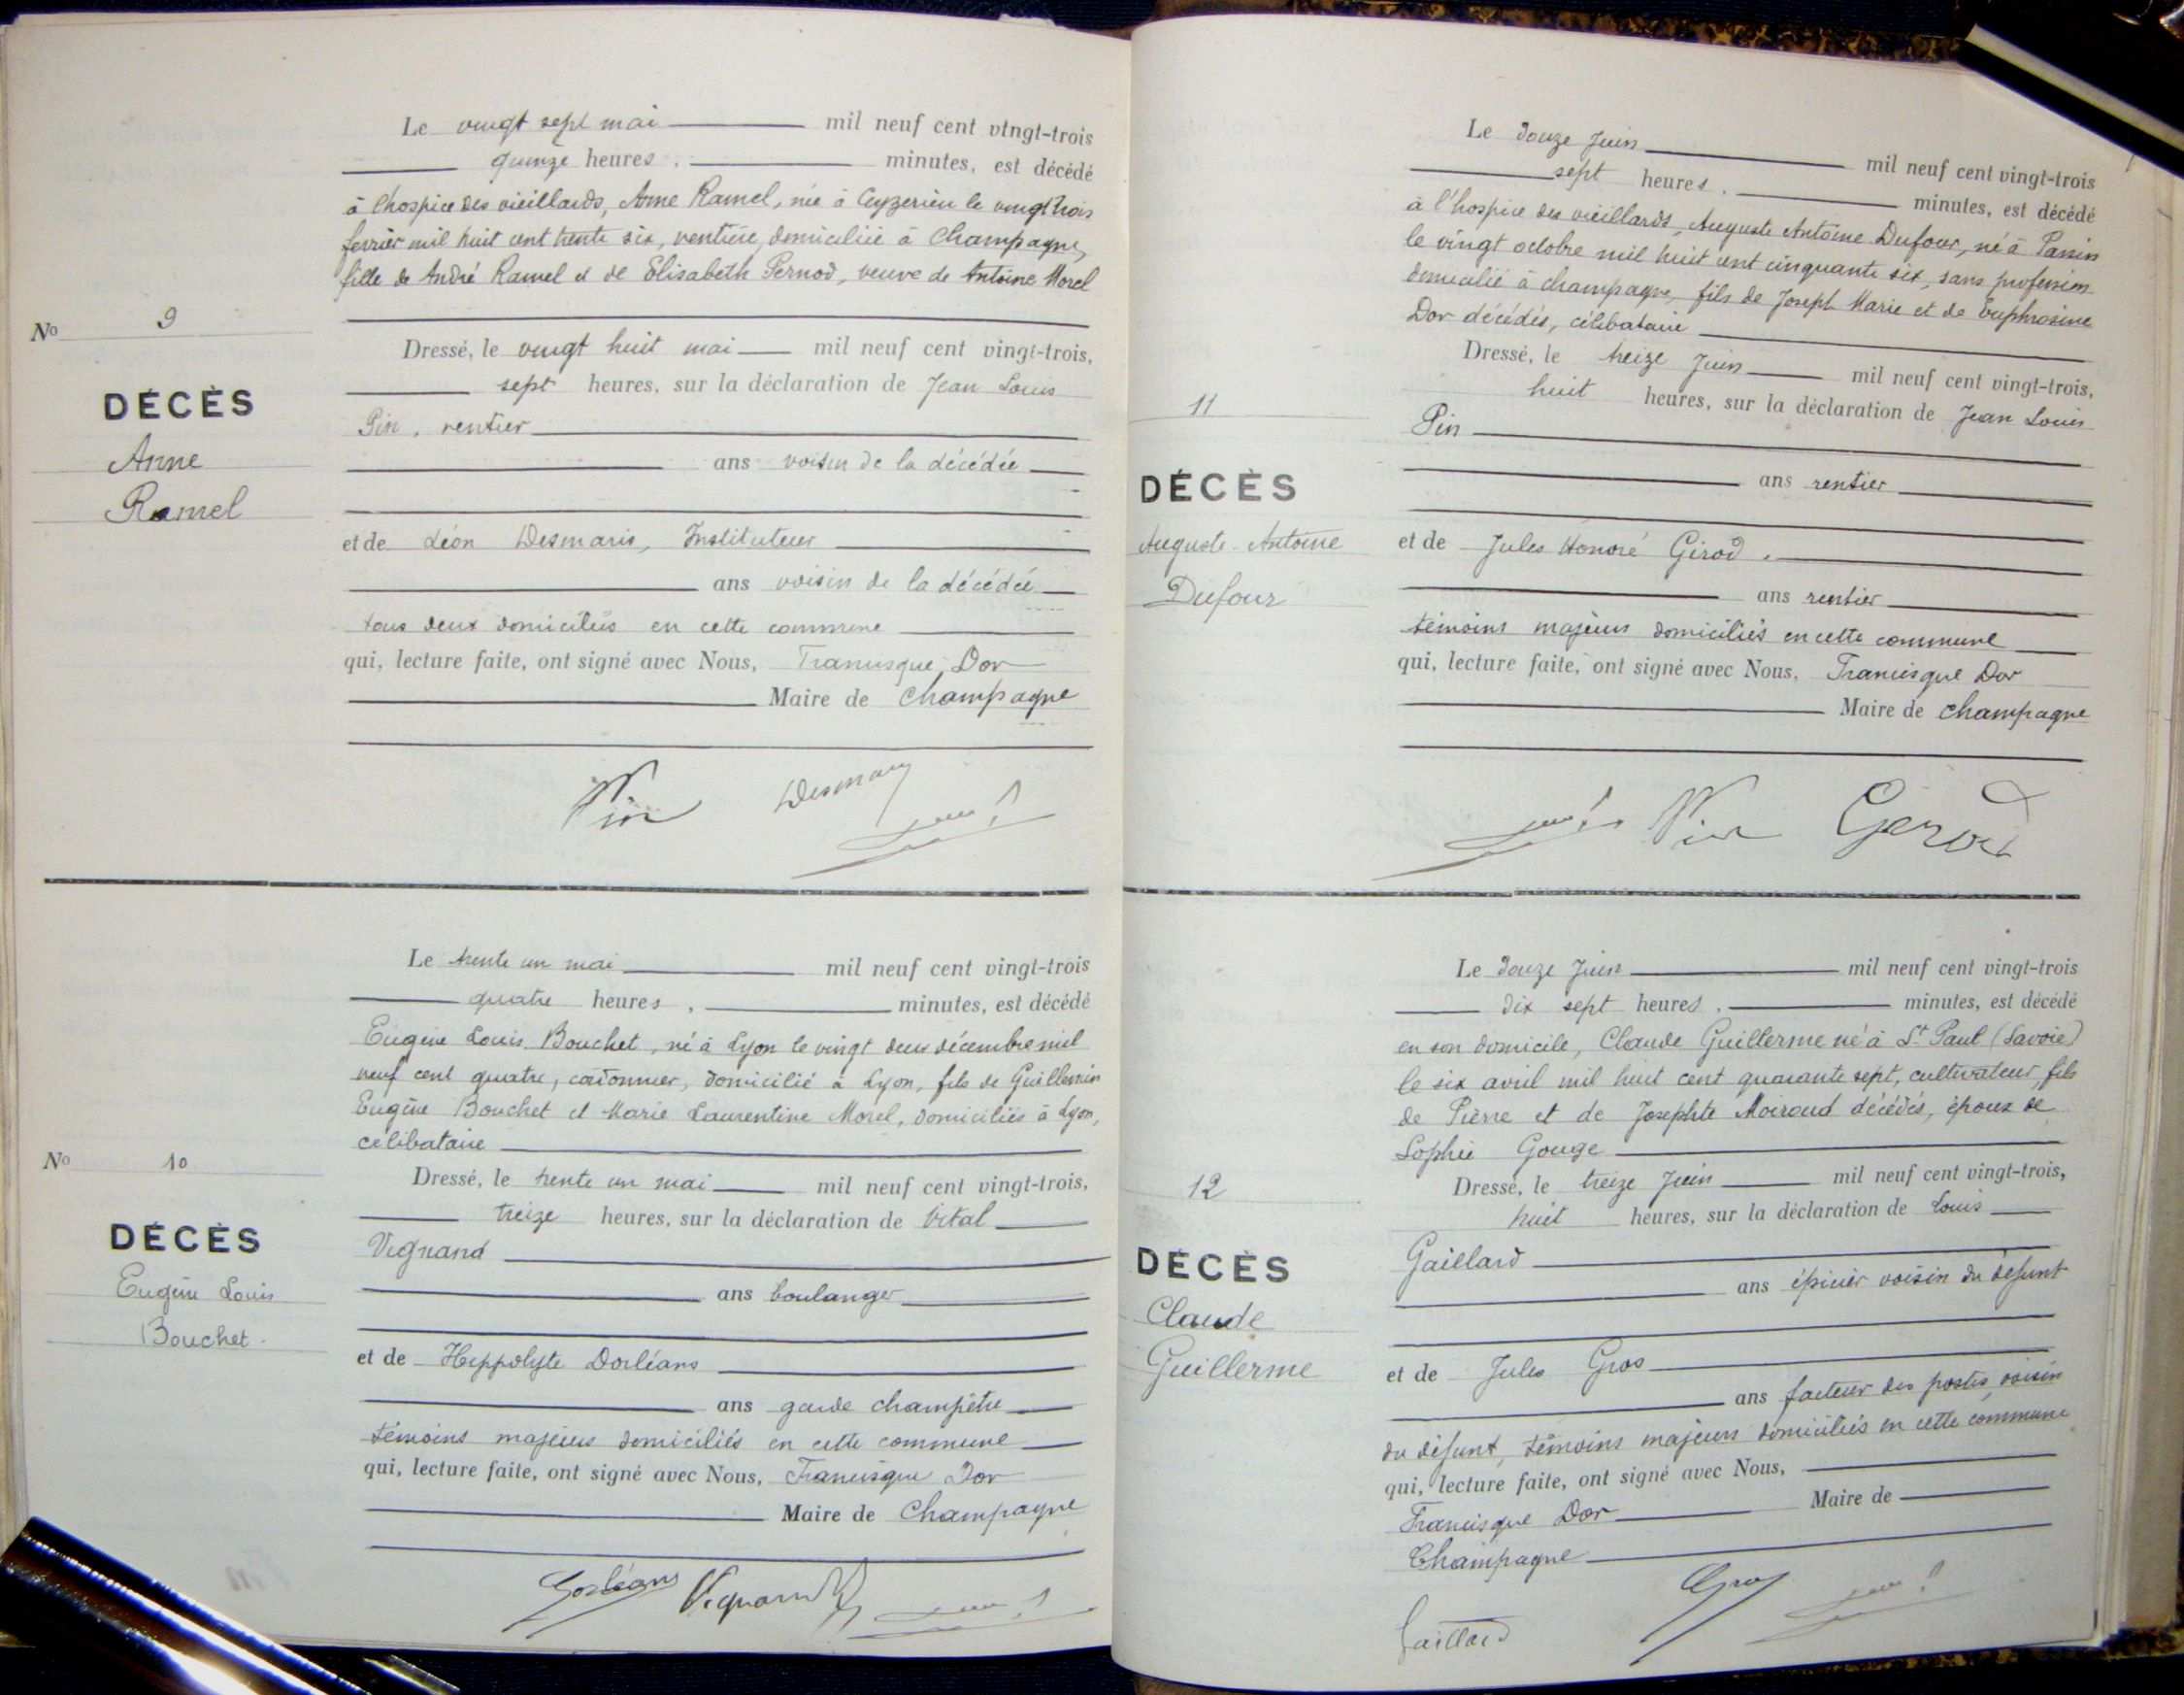 Le vingt sept mai mil neuf cent vingt-trois
quinze heures, minutes, est décédé
à l'hospice des vieillards, Anne Ramel, née à Ceyzerieu le vingt trois
fevrier mil huit cent trente six, rentière, domiciliée à Champagne,
fille de André Ramel et de Elisabeth Pernod, veuve de Antoine Morel
No 9
Dressé, le vingt huit mai mil neuf cent vingt-trois,
sept heures, sur la déclaration de Jean Louis
DÉCÈS
Pin, rentier
Anne
ans voisin de la décédée
Ramel
et de Léon Desmaris, Instituteur
ans voisin de la décédée
tous deux domiciliés en cette commune
qui, lecture faite, ont signé avec Nous, Francisque Dor
Maire de Champagne
Pin Desmaris
Le trente un mai mil neuf cent vingt-trois
quatre heures, minutes, est décédé
Eugène Louis Bouchet, né à Lyon le vingt deux décembre mil
neuf cent quatre, cartonnier, domicilié à Lyon, fils de Guillemin
Eugène Bouchet et Marie Laurentine Morel, domiciliés à Lyon,
célibataire
No 10
Dressé, le trente un mai mil neuf cent vingt-trois,
treize heures, sur la déclaration de Vital
DÉCÈS
Vignand
Eugène Louis
ans boulanger
Bouchet
et de Hyppolyte Dorléans
ans garde champêtre
témoins majeurs domiciliés en cette commune
qui, lecture faite, ont signé avec Nous, Francisque Dor
Maire de Champagne
Dorléans Vignand
Le douze Juin mil neuf cent vingt-trois
sept heures, minutes, est décédé
à l'hospice des vieillards, Auguste Antoine Dufour, né à Passin
le vingt octobre mil huit cent cinquante six, sans profession
domicilié à Champagne, fils de Joseph Marie et de Euphrosine
Dor décédés, célibataire
Dressé, le treize Juin mil neuf cent vingt-trois,
huit heures, sur la déclaration de Jean Louis
11
Pin
DÉCÈS
ans rentier
Auguste Antoine
et de Jules Honoré Girod.
Dufour
ans rentier
témoins majeurs domiciliés en cette commune
qui, lecture faite, ont signé avec Nous, Francisque Dor
Maire de Champagne
Pin Gerod
Le douze Juin mil neuf cent vingt-trois
dix sept heures, minutes, est décédé
en son domicile, Claude Guillerme né à St Paul (Savoie)
le six avril mil huit cent quarante sept, cultivateur, fils
de Pierre et de Josephte Moiroud décédés, époux de
Sophie Gouge
12
Dressé, le treize Juin mil neuf cent vingt-trois,
huit heures, sur la déclaration de Louis
DÉCÈS
Gaillard
ans épicier voisin du défunt
Claude
Guillerme
et de Jules Gros
ans facteur des postes, voisin
du défunt, témoins majeurs domiciliés en cette commune
qui, lecture faite, ont signé avec Nous,
Francisque Dor Maire de
Champagne
Gaillard Gros